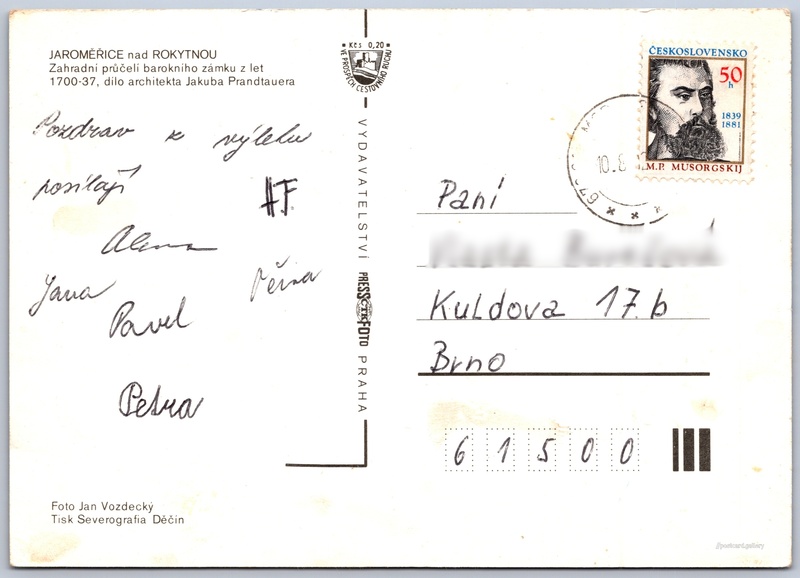 JAROMĚŘICE nad ROKYTNOU
Zahradní průčelí barokního zámku z let
1700-37, dílo architekta Jakuba Prandtauera
Pozdrav z výletu
posílají
HF
Alena
Jana
Věra
Pavel
Petra
Foto Jan Vozdecký
Tisk Severografia Děčín
Kčs 0,20
VE PROSPĚCH CESTOVNÍHO RUCHU
VYDAVATELSTVÍ PRESSFOTO PRAHA
ČESKOSLOVENSKO
50
h
1839
1881
M.P. MUSORGSKIJ
10.8
Paní
Kuldova 17.b
Brno
61500
//postcard.gallery